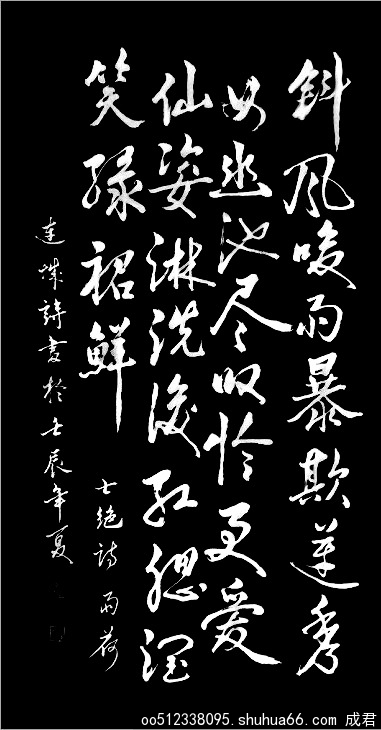 斜风嗖雨暴欺莲秀
女幽池尽叹怜更爱
仙姿淋洗後红腮润
笑绿裙鲜
七絕詩 雨荷
連 詩書於壬辰年夏
oo512338095.shuhua66.com 成君